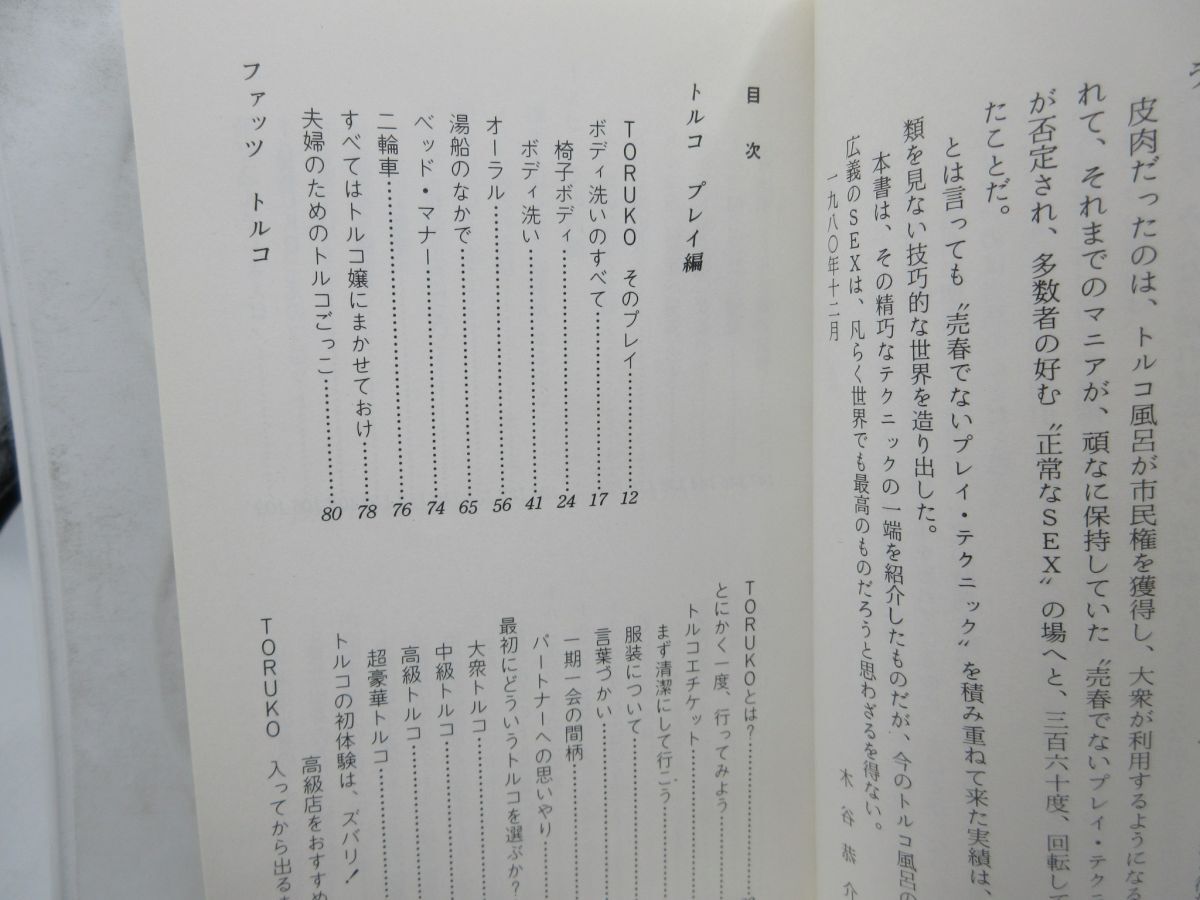 皮肉だったのは、トルコ風呂が市民権を獲得し、大衆が利用するようになる
れて、それまでのマニアが、頑なに保持していた〝売春でないプレイ・テクニ
が否定され、多数者の好む〝正常なSEX〟の場へと、三百六十度、回転して
たことだ。
とは言っても〝売春でないプレイ・テクニック〟を積み重ねて来た実績は、
類を見ない技巧的な世界を造り出した。
本書は、その精巧なテクニックの一端を紹介したものだが、今のトルコ風呂の
広義のSEXは、凡らく世界でも最高のものだろうと思わざるを得ない。
一九八〇年十二月
木谷恭介
目次
トルコ プレイ編
TORUKO そのプレイ……12
ボディ洗いのすべて……17
椅子ボディ……24
ボディ洗い……41
オーラル……56
湯船のなかで……65
ベッド・マナー……74
二輪車……76
すべてはトルコ嬢にまかせておけ……78
夫婦のためのトルコごっこ……80
ファッツ トルコ
TORUKOとは?……
とにかく一度、行ってみよう……
トルコエチケット……
まず清潔にして行こう……
服装について……
言葉づかい……
一期一会の間柄……
パートナーへの思いやり……
最初にどういうトルコを選ぶか?
大衆トルコ……
中級トルコ……
高級トルコ……
超豪華トルコ……
トルコの初体験は、ズバリ!
高級店をおすすめ
TORUKO 入ってから出るま